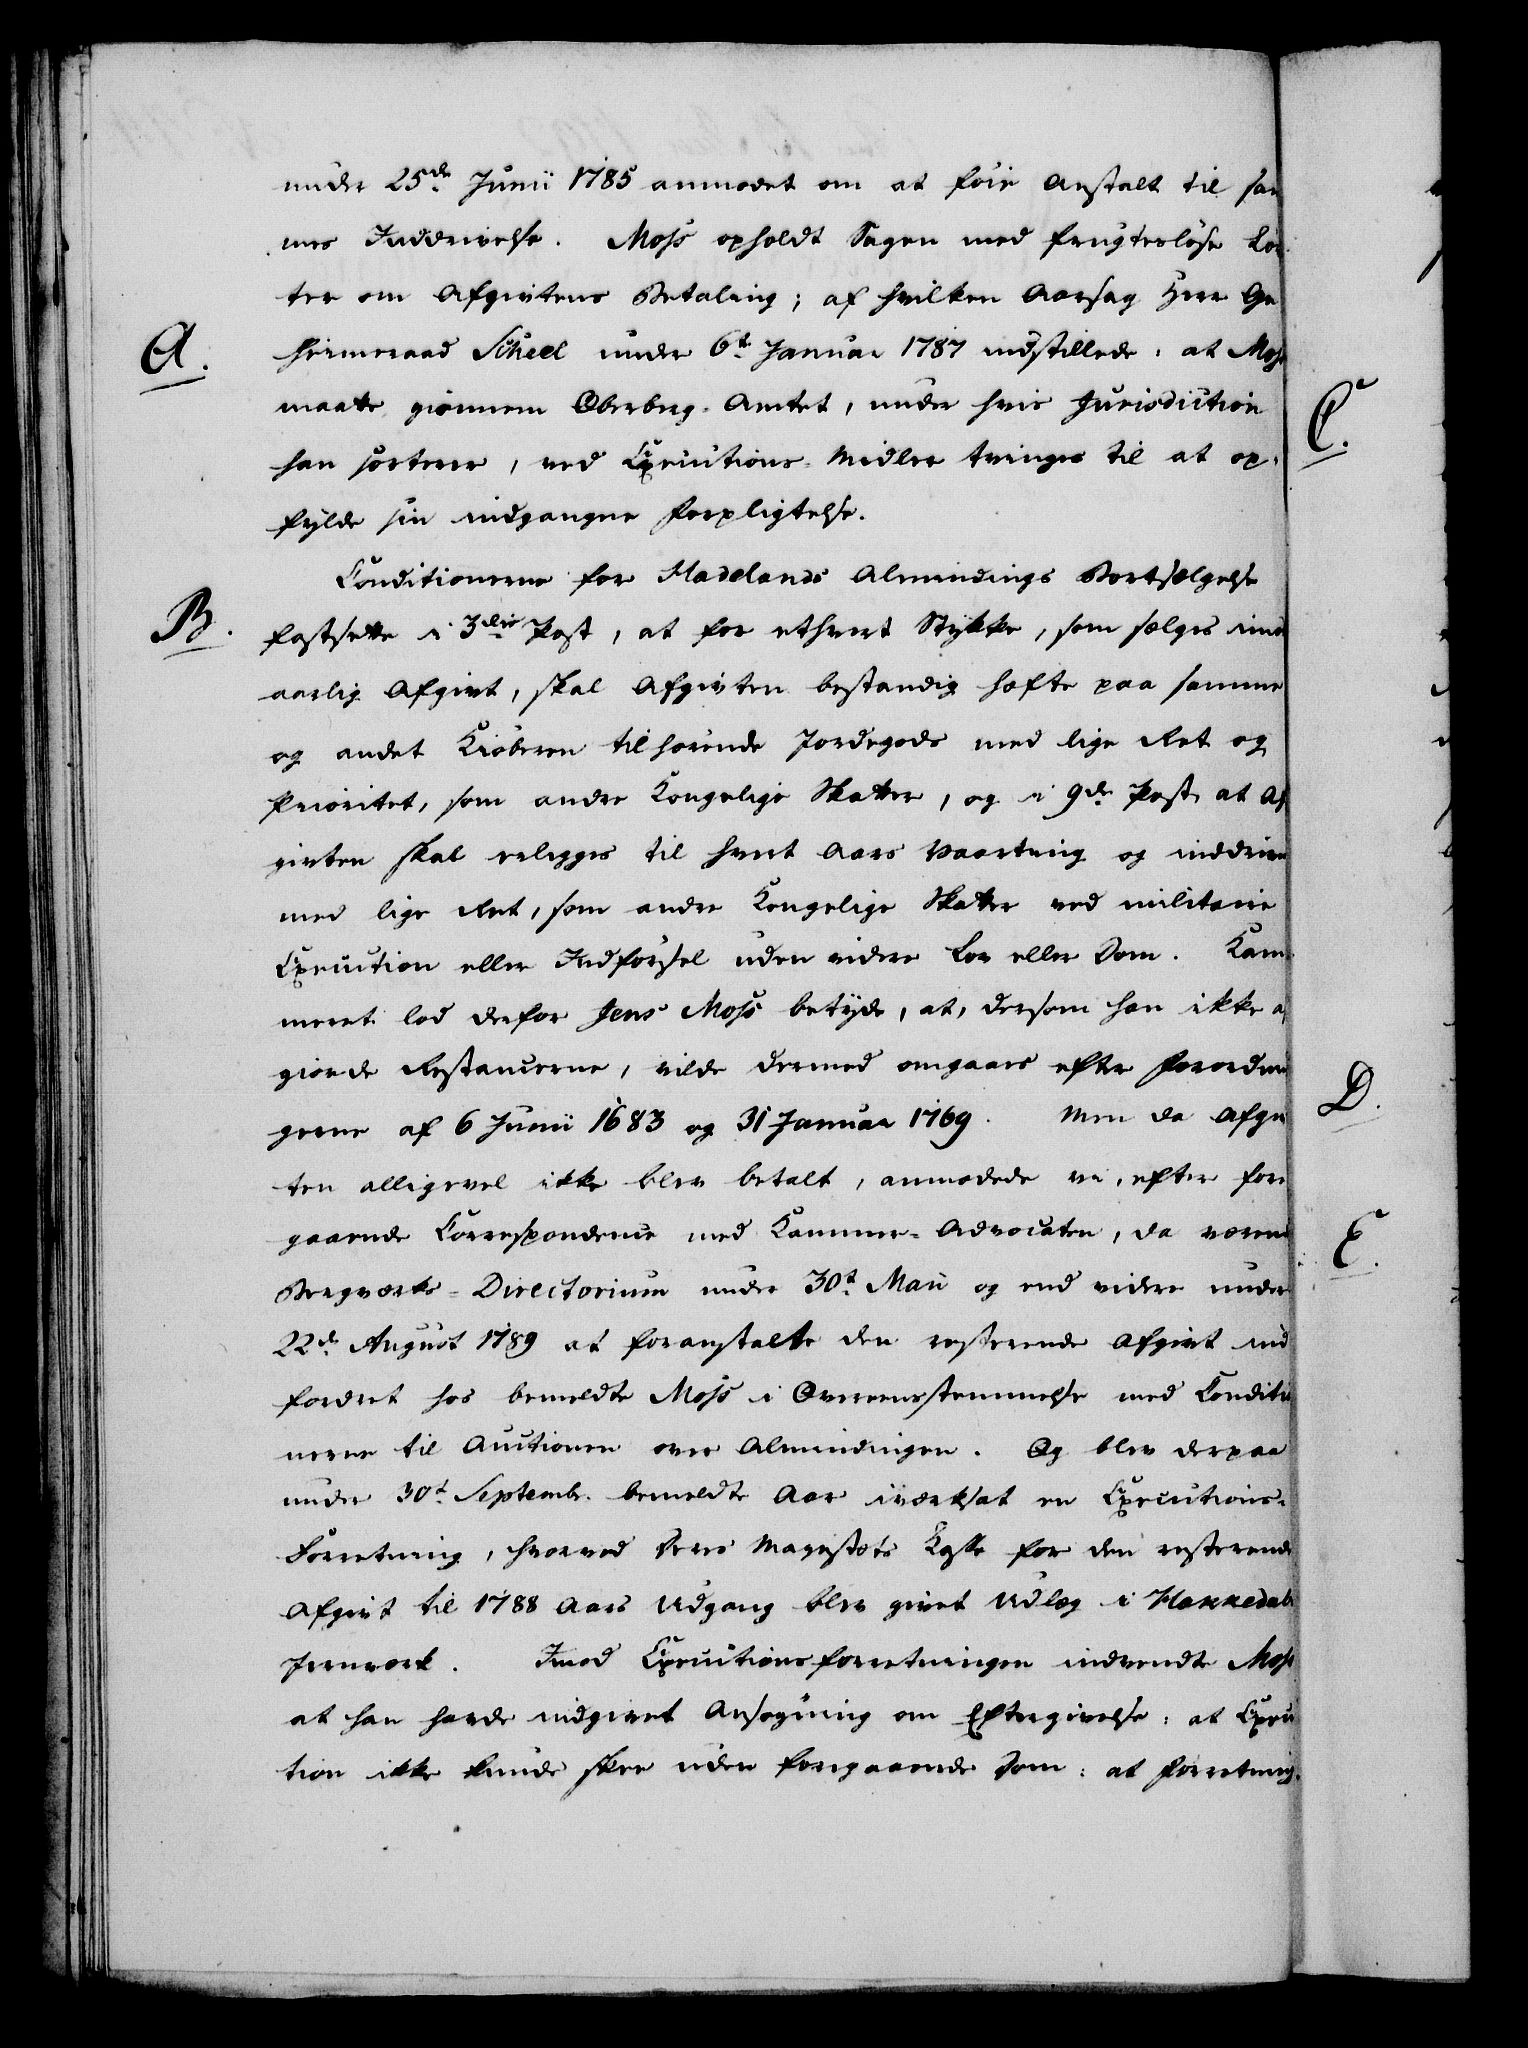 under 25de Junii 1785 anmodet om at föie Anstalt til sam
mes Inddrivelse. Moss opholdt Sagen med frugteslöse Löf
ter om Afgivtens Betaling; af hvilken Aarsag Herr Ge
A.
heimeraad Scheel under 6t Januar 1787 indstillede: at Moss
maatte giennem Oberberg-Amtet, under hvis Jurisdiction
C.
han sorterer, ved Executions-Midler tvinges til at op-
fylde sin indgangne Forpligtelse.
Conditionerne for Hadelands Almindings Bortsælgelse
B.
fastsætte i 3die Post, at for ethvert Stykke, som sælges imod
aarlig Afgivt, skal Afgivten bestandig hæfte paa samme
og andet Kiöberen tilhörende Jordegods med lige Ret og
Prioritet, som andre Kongelige Skatter, og i 9de Post, at Af
givten skal erlægges til hvert Aars Martini og inddrives
med lige Ret, som andre Kongelige Skatter ved militaire
Execution eller Indförsel uden videre Lov eller Dom. Kam
meret lod derfor Jens Moss betyde, at, dersom han ikke af
giorde Restancerne, vilde dermed omgaaes efter Forordnin
D.
gerne af 6 Junii 1683 og 31 Januar 1769. Men da Afgiv
ten alligevel ikke blev betalt, anmodede vi, efter fore
gaaende Correspondence med Kammer-Advocaten, da værende
E.
Bergværks-Directorium under 30t Maii og end videre under
22de August 1789 at foranstalte den resterende Afgivt ind
fordret hos bemeldte Moss i Overeensstemmelse med Conditio
nerne til Auctionen over Almindingen. Og blev derpaa
under 30t Septembr. bemeldte Aar iværksat en Executions-
Forretning, hvorved Deres Majestæts Kasse for den resterende
Afgivt til 1788 Aars Udgang blev givet Udlæg i Hakkedals
Jernværk. Imod Executionsforretningen indvendte Moss
at han havde indgivet Ansøgning om Eftergivelse: at Execu
tion ikke kunde skee uden foregaaende Dom: at Forretning-